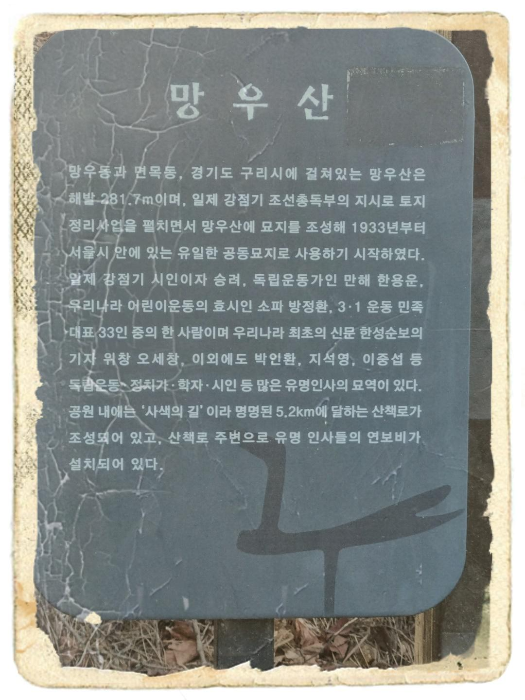 망우산
망우동과 면목동, 경기도 구리시에 걸쳐있는 망우산은
해발 281.7m이며, 일제 강점기 조선총독부의 지시로 토지
정리사업을 펼치면서 망우산에 묘지를 조성해 1933년부터
서울시 안에 있는 유일한 공동묘지로 사용하기 시작하였다.
일제 강점기 시인이자 승려, 독립운동가인 만해 한용운,
우리나라 어린이운동의 효시인 소파 방정환, 3·1 운동 민족
대표 33인 중의 한 사람이며 우리나라 최초의 신문 한성순보의
기자 위창 오세창, 이외에도 박인환, 지석영, 이중섭 등
독립운동·정치가·학자·시인 등 많은 유명인사의 묘역이 있다.
공원 내에는 '사색의 길' 이라 명명된 5.2km에 달하는 산책로가
조성되어 있고, 산책로 주변으로 유명 인사들의 연보비가
설치되어 있다.